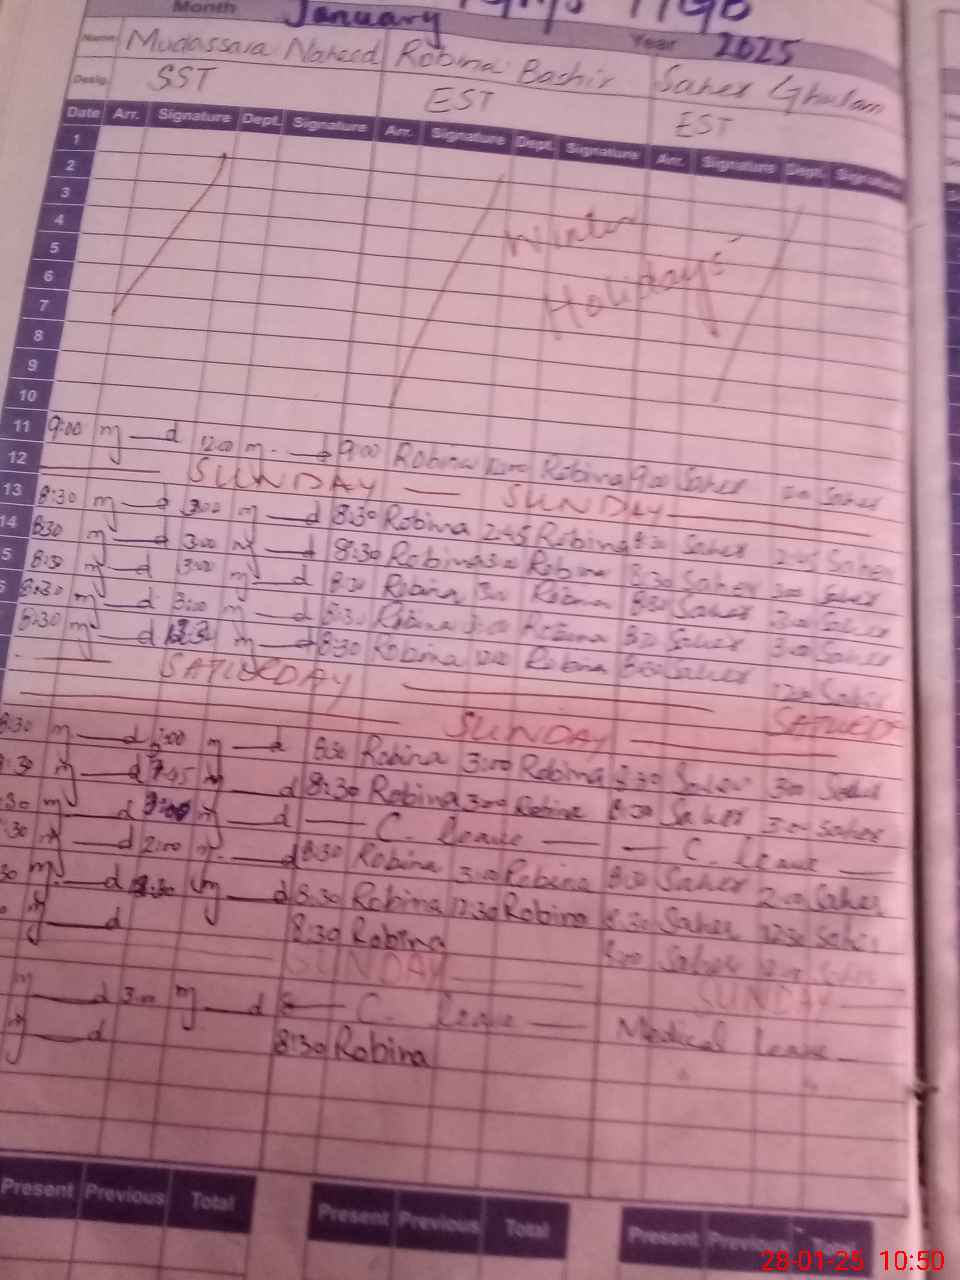 Month January Year 2025
Name Mudassara Naheed Robina Bashir Saher Ghulam
Desig. SST EST EST
Date Arr. Signature Dept. Signature Arr. Signature Dept. Signature Arr. Signature Dept. Signature
1
2
3
4 Winter
5
6 Holidays
7
8
9
10
11 9:00 m—d 12:00 m—d 9:00 Robina Robina 9:00 Saher Saher
12 SUNDAY — SUNDAY
13 8:30 m—d 3:00 m—d 8:30 Robina 2:45 Robina 8:30 Saher 2:45 Saher
14 8:30 m—d 3:00 m—d 8:30 Robina 3:00 Robina 8:30 Saher 3:00 Saher
5 8:30 m—d 3:00 m—d 8:30 Robina 3:00 Robina 8:30 Saher 3:00 Saher
8:30 m—d 3:00 m—d 8:30 Robina 3:00 Robina 8:30 Saher 3:00 Saher
8:30 m—d m—d 8:30 Robina Robina Saher Saher
SATURDAY SATURD
SUNDAY
8:30 m—d 3:00 m—d 8:30 Robina 3:00 Robina 8:30 Saher 3:00 Saher
:30 m—d m—d 8:30 Robina 3:00 Robina 8:30 Saher 3:00 Saher
:30 m—d 3:00 m—d — C. leave — — C. leave —
:30 m—d 2:00 m—d 8:30 Robina 3:00 Robina 8:30 Saher 2:00 Saher
30 m—d m—d 8:30 Robina 12:30 Robina 8:30 Saher 12:30 Saher
m—d 8:30 Robina Saher
SUNDAY SUNDAY
m—d 3:00 m—d — C. leave — Medical leave
m—d 8:30 Robina
Present Previous Total Present Previous Total Present Previous Total
28-01-25 10:50